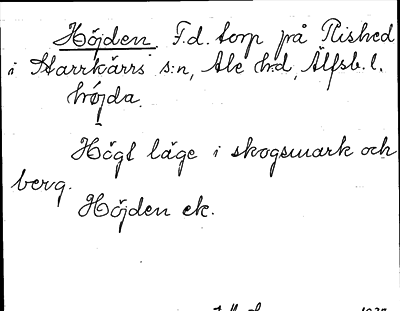 Höjden F.d. torp på Rished
i Starrkärrs s:n, Ale h:d, Älfsb. l.
höjda.
Högt läge i skogsmark och
berg.
Höjden ek.